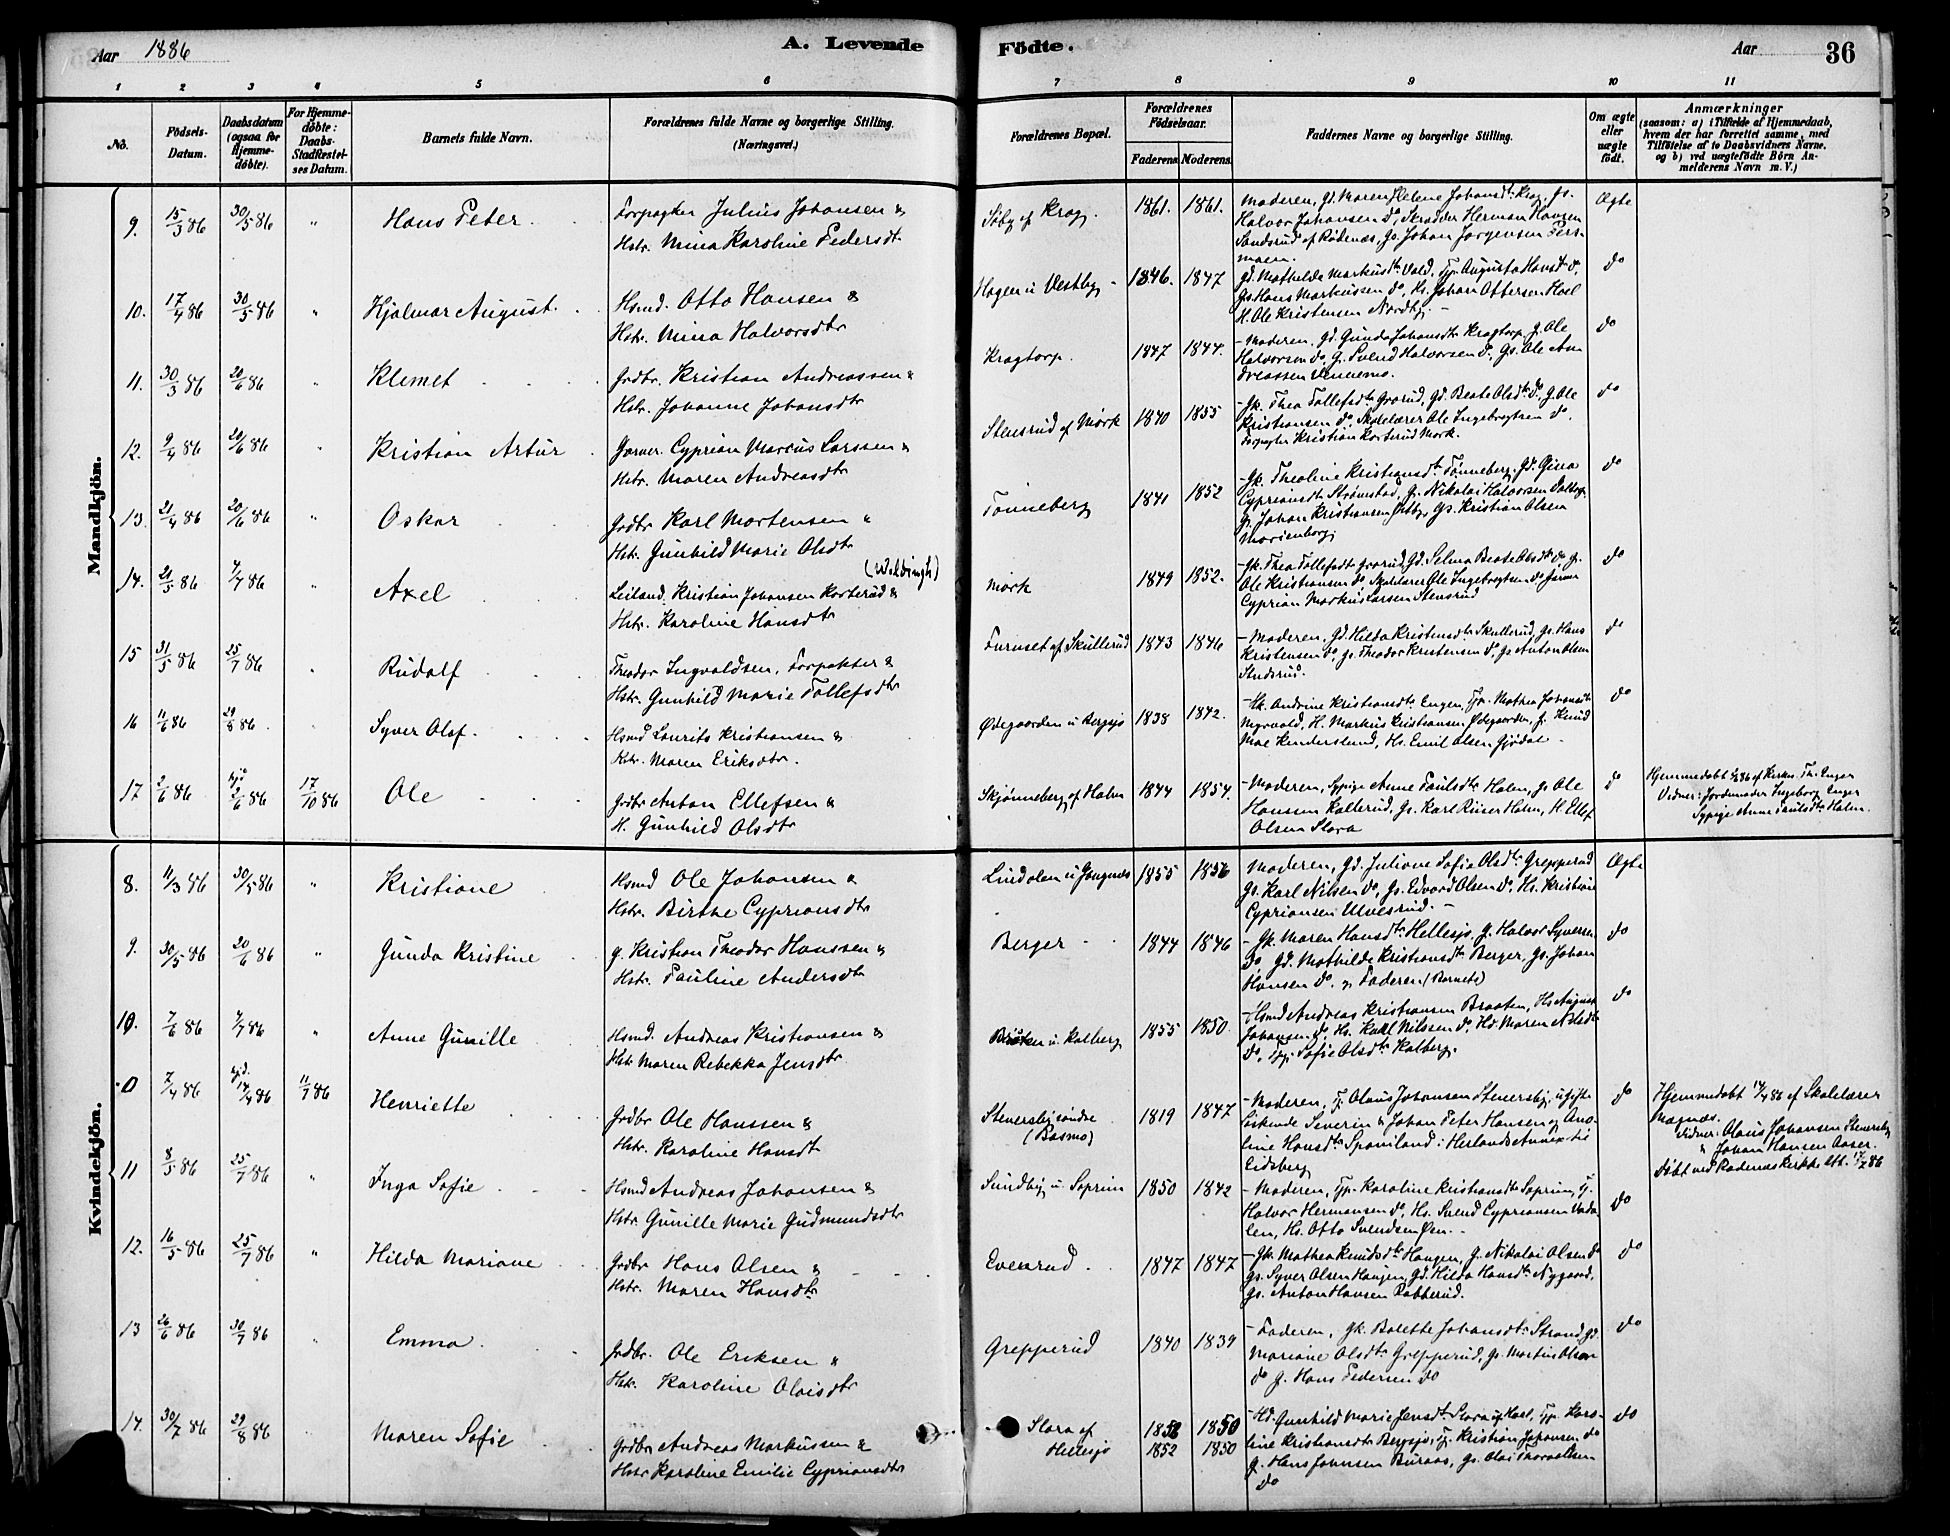 Aar 1886
A. Levende
Födte.
Aar
36
1 2 3 4 5 6 7 8 9 10 11
No.
Födsels-
Datum.
Daabsdatum
(ogsaa for
Hjemme-
döbte).
For Hjemme-
döbte:
Daabs-
Stadfæstel-
ses Datum.
Barnets fulde Navn.
Forældrenes fulde Navne og borgerlige Stilling.
(Næringsvei.)
Forældrenes Bopæl.
Forældrenes
Födselsaar.
Faderens Moderens.
Faddernes Navne og borgerlige Stilling.
Om ægte
eller
uægte
født.
Anmærkninger
(saasom: a) i Tilfælde af Hjemmedaab,
hvem der har forrettet samme, med
Tilföielse af to Daabsvidners Navne,
og b) ved uægtefödte Börn An-
melderens Navn m. V.)
Mandkjön.
9. 15/3 86 30/5 86 " Hans Peter
Forpagter Julius Johansen &
Hstr. Mina Karoline Pedersdt.
Søby af Krog. 1861. 1861.
Moderen, Gd. Maren Helene Johansdtr Krog, Gs.
Halvor Johansen do, Skrædder Herman Hansen
Sandsrud af Rødenæs, Gs. Johan Jørgensen Pers-
moen.
Ægte
10. 17/4 86 30/5 86 " Hjalmar August
Hsmd. Otto Hansen &
Hstr. Mina Halvorsdtr
Hagen u Vestby 1846. 1847
Gd. Mathilde Markusdtr Vold, Tp. Augusta Hansd. do,
Gs. Hans Markussen do, Hs. Johan Ottersen Hoel
H. Ole Kristensen Nordby.
do
11. 30/3 86 20/6 86 " Klemet
Grdbr. Kristian Andreassen &
Hstr. Johanne Johansdtr
Kragtorp. 1847 1844.
Moderen, Gd. Gunda Johansdtr Kragtorp, G. Ole
Halvorsen do, G. Svend Halvorsen do, Gs. Ole An
dreassen Vennemo.
do
12. 9/4 86 20/6 86 " Kristian Artur
Garver. Cyprian Marcus Larssen &
Hstr. Maren Andreasdtr
Stensrud af Mørk 1840 1855
Gk. Thea Tollefsdtr Grorud, Gd. Beate Olsdtr do, G. Ole
Kristiansen do, Skolelærer Ole Ingebregtsen do,
Forpagter Kristian Korterud Mørk.
do
13. 21/4 86 20/6 86 " Oskar
Grdbr Karl Mortensen &
Hstr. Gunhild Marie Olsdtr
Tønneberg 1841 1852
Gk. Theoline Kristiansdtr Tønneberg, Gd. Gina
Cypriandt Strømstad, G. Nikolai Halvorsen
G. Johan Kristiansen Østby, Gs. Kristian Olsen
Marienborg.
do
14. 21/5 86 4/7 86 " Axel
Leiland. Kristian Johansen Korterud &
Hstr. Karoline Hansdtr
Mørk 1849 1852.
Gk. Thea Tollefsdt Grorud, Gd. Selma Beate Olsdtr do, G.
Ole Kristiansen do, Skolelærer Ole Ingebregtsen do, Garver
Cyprian Markus Larsen Stensrud
do
15 31/5 86 25/7 86 " Rudolf
Theodor Ingvaldsen, Forpakter &
Hstr. Gunhild Marie Tollefsdtr
Furuset af Skullerud 1843 1846
Moderen, Gd. Hilda Kristensdtr Skullerud, Gs. Hans
Kristensen do, Gs. Theodor Kristensen do, Gs Anton Olsen
Stensrud.
do
16 11/6 86 29/8 86 Syver Olaf
Hsmd Laurits Kristiansen &
Hstr. Maren Eriksdtr.
Ødegaarden u Bergsjø 1838 1842.
Hk. Andrine Kristiansdtr Engen, Tp. Mathea Johansdtr
Myrvold, H. Markus Kristiansen Ødegaarden, G. Knud
Moe Henderslund, Hs. Emil Olsen Gjødal
do
17 2/6 86 hjd 2/6 86 17/10 86 Ole
Grdbr Anton Ellefsen &
H. Gunhild Olsdtr
Skjønneberg af Holm 1844 1854.
Moderen, Sypige Anne Paulsdtr Holm, Gs. Ole
Hansen Kallerud, Gs. Karl Riiser Holm, H. Ellef
Olsen Slora
do
Hjemmedøbt 2/6 86 af Kirkes. Th. Enger
Vidner: Jordemoder Ingeborg Enger
Sypige Anne Paulsdtr Holm.
Kvindekjön.
8. 11/3 86 30/5 86 " Kristiane
Hsmd Ole Johansen &
Hstr. Birthe Cypriansdtr
Lindalen u Gangnæs 1855 1856
Moderen, Gd. Juliane Sofie Olsdtr Grepperud
Gs. Karl Nilsen do, Gs. Edvard Olsen do, Hs. Kristian
Cypriansen Ulvesrud.
Ægte
9. 30/5 86 20/6 86 " Gunda Kristine
G. Kristian Theodor Hanssen &
Hstr. Pauline Andersdtr
Berger 1844 1846
Gk. Maren Hansdtr Hellesjø, G. Halvor Syversen
do Gd. Mathilde Kristiansdtr Berger, Gs. Johan
Hansen do. & Faderen (Barnets)
do
10. 7/6 86 4/7 86 " Anne Gunille
Hsmd. Andreas Kristiansen &
Hstr Maren Rebekka Jensdtr
Braaten u. Kalberg 1855 1850
Hsmd Andreas Kristiansen Braaten, Hs August
Johansen do, Hs. Karl Nilssen do Hd. Maren Nilsdtr
do, Tp. Sofie Olsdtr Kalberg.
do
10 7/4 86 hjd. 14/4 86 11/7 86 Henriette
Grdbr Ole Hanssen &
Hstr. Karoline Hansdt
Stenersby søndre
(Basmo)
1819 1847
Moderen, Tj. Olaus Johansen Stenersby, ugifte
Søskende Severin & Johan Peter Hansen og Ano-
line Hansdtr Spaniland i Herlands Annex til
Eidsberg
do
Hjemmedøbt 14/4 86 af Skolelærer
Magnæs.
Vidner: Olaus Johansen Stenersby
" Johan Hansen Aaser.
Døbt ved Rødenæs Kirke
11 8/5 86 25/7 86 " Inga Sofie
Hsmd Andreas Johansen &
Hstr. Gunille Marie Gudmundsdtr
Sundby u. Soprim 1850 1842
Moderen, Tp. Karoline Kristiansdtr Soprim, Tj.
Halvor Hermansen do, Hs. Svend Cypriansen Vada-
len, Hs. Otto Svendsen Øen.
do
12. 16/5 86 25/7 86 " Hilda Mariane
Grdbr Hans Olsen &
Hstr. Maren Hansdtr
Evensrud. 1847 1847
Gk. Mathea Knudsdtr Haugen, G. Nikolai Olsen do
Gs. Syver Olsen Haugen, Gd. Hilda Hansdtr Nygaard,
Gs. Anton Hansen Rabberud.
do
13 26/6 86 30/7 86 " Emma
Grdbr. Ole Eriksen &
Hstr. Karoline Olaisdtr
Grepperud 1840 1839
Faderen, Gk. Bolette Johansdtr Strand, Gd.
Mariane Olsdtr Grepperud, Gs. Martin Olsen
do G. Hans Pedersen do
do
14. 30/7 86 29/8 86 Maren Sofie
Grdbr Andreas Markussen &
Hstr Karoline Emilie Cypriansdtr
Slora af
Hellesjø
1852 1850
1852 1850
Hd. Gunhild Marie Jensdtr Slora af Hoel, Tp. Karo-
line Kristiansdtr Bergsjø, Tj. Kristian Johansen do
G. Hans Johnsen Buraas, Gs. Olai Thorvaldsen
do
do